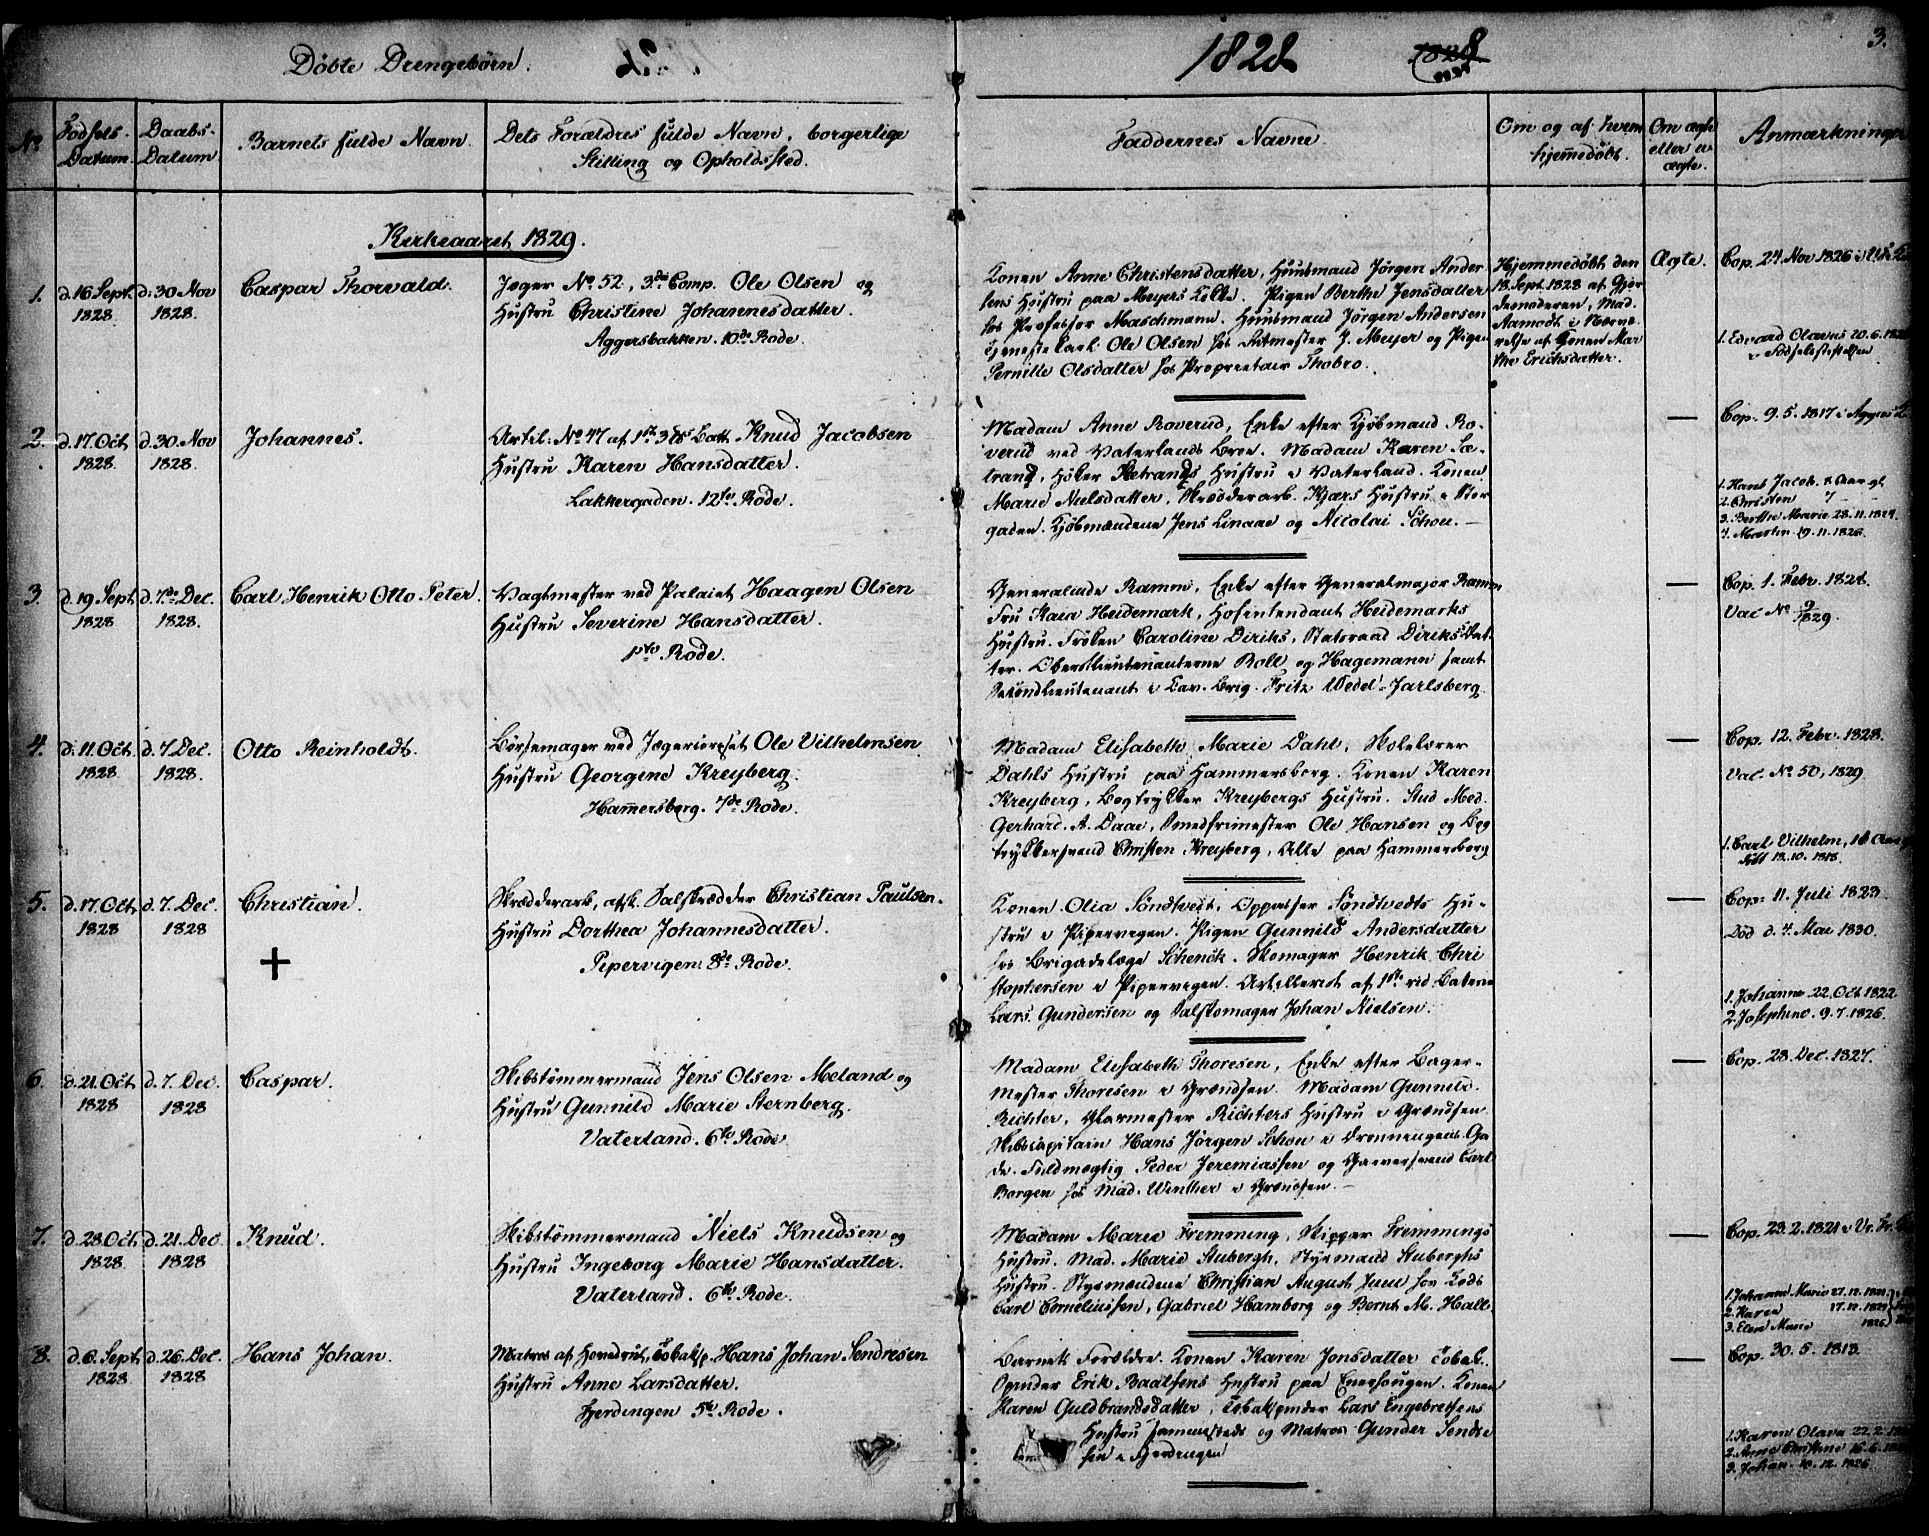 Döbte Drengebörn.
1828
3.
No
Födsels-
Datum.
Daabs-
Datum
Barnets fulde Navn.
Dets Forældres fulde Navn, borgerlige
Stilling og Opholdssted.
Faddernes Navne.
Om og af hvem
hjemmedöbt.
Om ægte
eller u-
ægte.
Anmærkninger
Kirkeaaret 1829.
1.
d. 16 Sept.
1828
d. 30 Nov
1828.
Caspar Thorvald.
Jæger No 52, 3de Comp. Ole Olsen og
Hustru Christine Johannesdatter.
Aggersbakken. 10de Rode.
Konen Anne Christensdatter, Huusmand Jörgen Ander-
sens Hustru paa Meyers Lökke. Pigen Berthe Jensdatter
hos Professor Maschmann. Huusmand Jörgen Andersen
Tjenestekarl Ole Olsen hos J. Meyer og Pigen
Pernille Olsdatter hos Proprietair Thobro.
Hjemmedöbt den
18. Sept. 1828 af Gjor-
demoderen, Mad.
Aamodt i Nærvæ-
relse af Konen Mar
the Erichsdatter.
Ægte.
Cop. 24. Nov 1826 i
1. Edvard Olavus 20. 6.
i Födselsstiftelsen
2.
d. 17. Oct
1828
d. 30. Nov
1828.
Johannes.
Artil. No 47 af 1ste Batt. Knud Jacobsen
Hustru Karen Hansdatter.
Lakkergaden. 12te Rode.
Madam Anne Roverud, Enke efter Kjöbmand Ro-
verud ved Vaterlands Broe. Madam Karen Sæ-
trand, Höker Sætrands Hustru i Vaterland. Konen
Marie Nielsdatter, Skrædderarb. Kjærs Hustru i Stor
gaden. Kjöbmændene Jens Linaae og Nicolai Schou.
—
Cop. 9. 5. 1817 i Aggers K
1. Hans Jacob. 8 Aar gl.
2. Christen 7 —
3. Berthe Marie 28. 11. 1824.
4. Martin 19. 11. 1826.
3.
d. 19. Sept
1828
d. 7de Dec.
1828.
Carl Henrik Otto Peter.
Vagtmester ved Palaiet Haagen Olsen
Hustru Severine Hansdatter.
1ste Rode.
Generalinde Ramm, Enke efter Generalmajor Ramm
Fru Kaia Heidemark, Hofintendant Heidemarks
Hustru. Fröken Caroline Diriks, Statsraad Diriks Dat-
ter. Oberstlieutenanterne Roll og Hagemann samt
Secondlieutenant i Cav. Brig. Fritz Wedel-Jarlsberg.
—
Cop. 1. Febr. 1828.
Vac No 9/1829.
4.
d. 11. Oct
1828
d. 7. Dec.
1828.
Otto Reinholdt.
Börsemager ved Jægercorpset Ole Vilhelmsen
Hustru Georgene Kreyberg.
Hamersborg. 7de Rode.
Madam Elisabeth Marie Dahl, Skolelærer
Dahls Hustru paa Hammersborg. Konen Karen
Kreyberg, Bogtrykker Kreybergs Hustru. Stud Med.
Gerhard. A. Daae, Smedfrimester Ole Hansen og Bog
trykkersvend Christen Kreyberg, Alle paa Hammersborg
—
Cop. 12. Febr. 1828.
Vac. No 50, 1829.
1. Carl Vilhelm, 10 Aar
födt 13. 10. 1818.
5.
d. 17. Oct.
1828
d. 7. Dec.
1828
Christian.
+
Skrædderarb, afsk. Salskrædder Christian Paulsen.
Hustru Dorthea Johannesdatter.
Pipervigen 8de Rode.
Konen Olia Söndtvedt, Oppasser Söndtvedts Hu-
stru i Pipervigen. Pigen Gunnild Andersdatter
hos Brigadelæge Schenck. Skomager Henrik Chri
stophersen i Pipervigen. Artillerist af 1ste rid. Batterie
Lars Gundersen og Salskomager Johan Nielsen.
—
Cop. 11. Juli 1823.
Död d. 4. Mai 1830.
1. Johanne 22. Oct 1822
2. Josephine. 9. 7. 1826.
6.
d. 21. Oct
1828
d. 7. Dec.
1828
Caspar.
Skibstömmermand Jens Olsen Meland og
Hustru Gunnild Marie Sternberg.
Vaterland. 6te Rode
Madam Elisabeth Thoresen, Enke efter Bager-
mester Thoresen i Grændsen. Madam Gunnild
Richter, Glarmester Richters Hustru i Grændsen.
Skibscapitain Hans Jörgen Schou i Dronningens Ga-
de. Fuldmægtig Peder Jeremiassen og Garversvend Carl
Borgen hos Mad. Winther i Grændsen. —
—
Cop. 28. Dec. 1827.
7.
d. 28. Oct
1828.
d. 21. Dec
1828
Knud.
Skibstömmermand Niels Knudsen og
Hustru Ingeborg Marie Hansdatter.
Vaterland. 6te Rode.
Madam Marie Fremming, Skipper Fremmings
Hustru. Mad. Marie Stubergh, Styrmand Stuberghs
Hustru. Styrmændene Christian August Juul
Carl Corneliussen, Gabriel Hamborg og Bernt M. Hall.
—
Cop. 23. 2. 1821 i Vr. Fr.
1. Johanne Marie 27. 12. 1821.
2. Karen 17. 12. 1824
3. Elen Marie 1826.
8.
d. 6. Sept
1828
d. 26. Dec.
1828
Hans Johan.
Matros af Hovedrul, Tobaksp. Hans Johan Sendresen
Hustru Anne Larsdatter.
Fjerdingen 5te Rode.
Barnets Forældre. Konen Karen Jonsdatter Tobak-
spinder Erik Baalsens Hustru paa Enerhougen. Konen
Karen Guldbrandsdatter, Tobakspinder Lars Engebretsens
Hustru sammesteds og Matros Gunder Sendre
sen i Fjerdingen
—
Cop. 30. 5. 1813.
1. Karen Olava 22. 2.
2. Anne Christine 16. 6.
3. Johan. 10. 12. 1826.